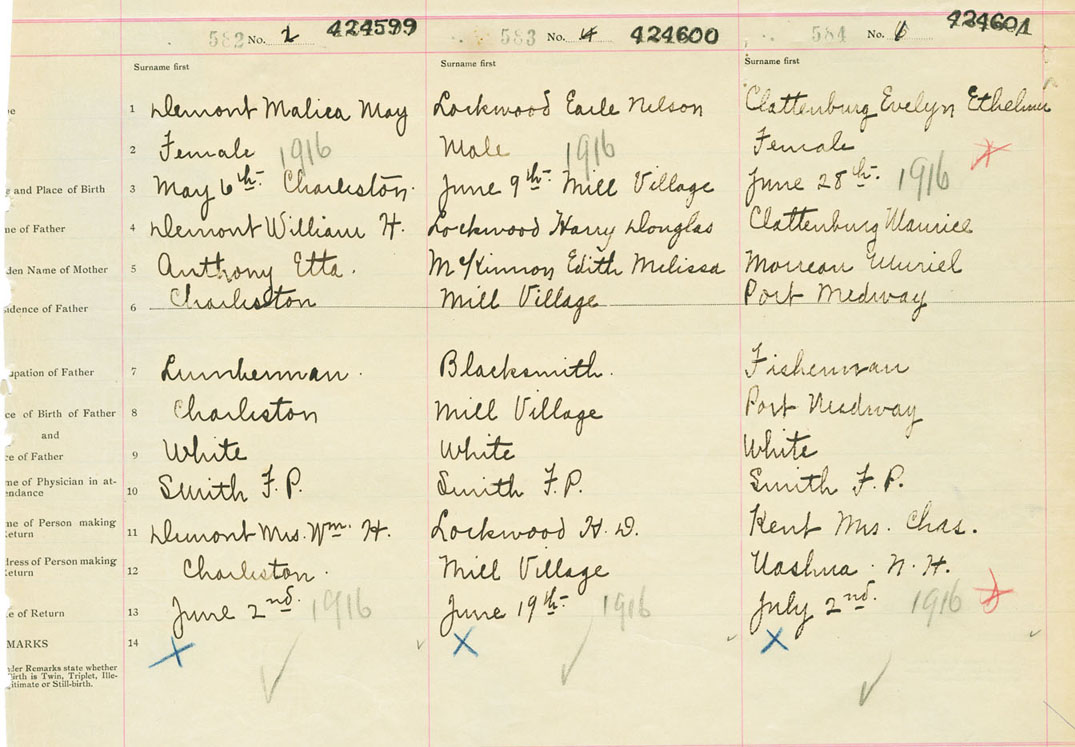 582 No. 2 424599 583 No. 4 424600 584 No. 6 424601
Surname first Surname first Surname first
1 Demont Malica May Lockwood Earle Nelson Clattenburg Evelyn
2 Female 1916 Male 1916 Female
and Place of Birth 3 May 6th. Charleston. June 9th. Mill Village June 28th. 1916
me of Father 4 Demont William H. Lockwood Harry Douglas Clattenburg Maurice
den Name of Mother 5 Anthony Etta. McKinnon Edith Melissa Muriel
sidence of Father 6 Charleston Mill Village Port Medway
upation of Father 7 Lumberman. Blacksmith. Fisherman
ce of Birth of Father 8 Charleston Mill Village Port Medway
and
ce of Father 9 White White White
me of Physician in at-
endance 10 Smith F.P. Smith F.P. Smith F.P.
me of Person making
Return 11 Demont Mrs. Wm. H. Lockwood H. D. Kent Mrs. Chas.
dress of Person making
Return 12 Charleston. Mill Village Nashua. N.H.
e of Return 13 June 2nd. 1916 June 19th. 1916 July 2nd. 1916
MARKS 14
der Remarks state whether
Birth is Twin, Triplet, Ille-
gitimate or Still-birth.